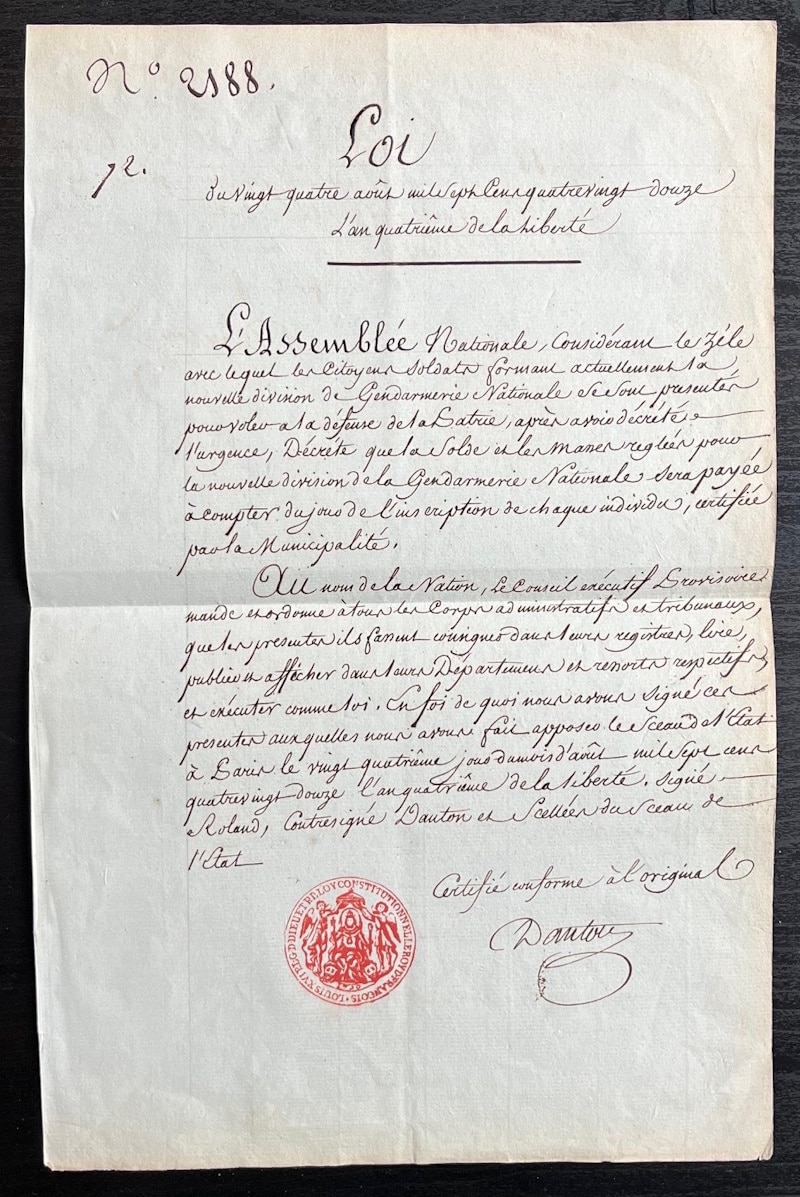 N.º 2188.
72.
Loi
du vingt quatre août mil sept Cens quatre vingt douze
L'an quatrième de la Liberté
L'Assemblée Nationale, Considérant le Zéle
avec lequel les Citoyens soldats formant actuellement la
nouvelle division de Gendarmerie Nationale se sont presentés
pour voler a la défense de la Patrie, après avoir décrété
l'urgence, Décréte que la Solde et les Masses regleés pour
la nouvelle division de la Gendarmerie Nationale sera payéé
à compter du jour de l'inscription de chaque individu, certifiée
par la Municipalité.
Au nom de la Nation, Le Conseil exécutif Provisoire
mande et ordonne à tous les Corps administratifs et tribunaux,
que les presentes ils fassent consigner dans leurs registres, lire,
publier et afficher dans leurs Départemens et ressorts respectifs
et exécuter comme loi. En foi de quoi nous avons signé ces
presentes auxquelles nous avons fait apposer le Sceau de l'Etat
à Paris le vingt quatrième jour du mois d'août mil sept cens
quatre vingt douze l'an quatrième de la liberté. signé
Roland, Contresigné Danton et Scellées du Sceau de
l'Etat
Certifié conforme à l'original
Danton
LOUIS XVI P. L. G. D. DIEU ET P. LA LOY CONSTITUTIONNELLE ROY D. FRANCOIS